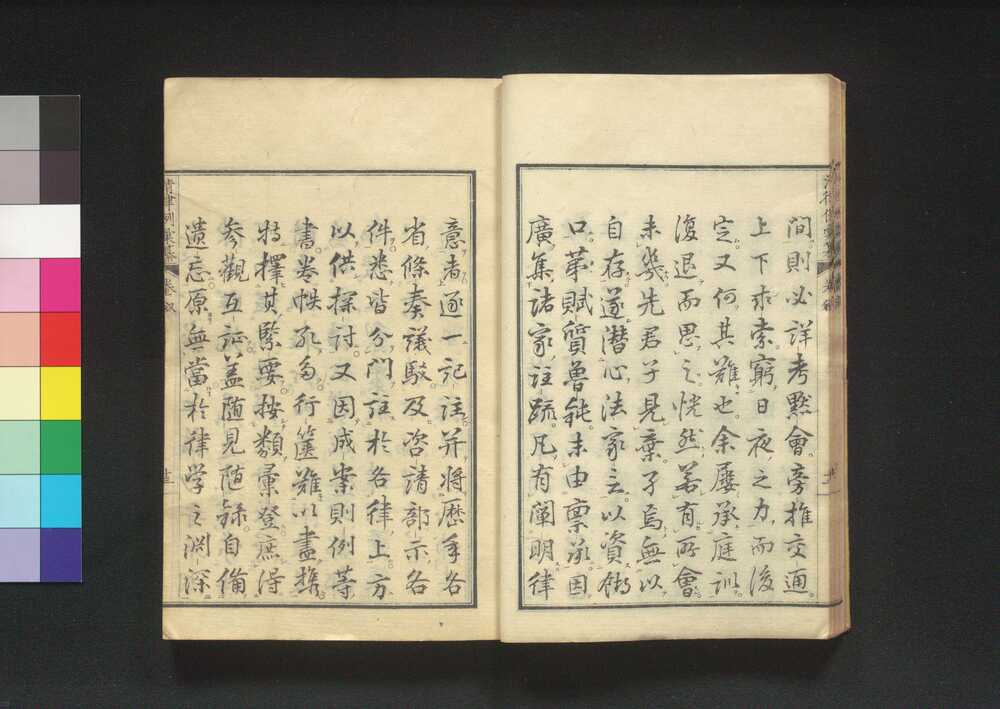 間則必詳考黙會。旁推交通。
上下求索。窮日夜之力。而後
定。又何其難也。余屢承庭訓。
復退而思之。恍然若有所會。
未幾先君子見棄。孑焉無以
自存。遂潜心法家言。以資餬
口。第賦質魯鈍。未由稟承。因
廣集諸家註疏。凡有闡明律
意者。逐一記註。并將歴年各
省條奏議駁。及咨請部示各
件。悉皆分門註於各律上方
以供探討。又因成案則例等
書。卷帙孔多。行篋難以盡携
特擇其緊要。按類彙登。庶得
參觀互証。盖随見随録。自備
遺忘。原無當於律学之淵深
清律例彙纂
卷叙